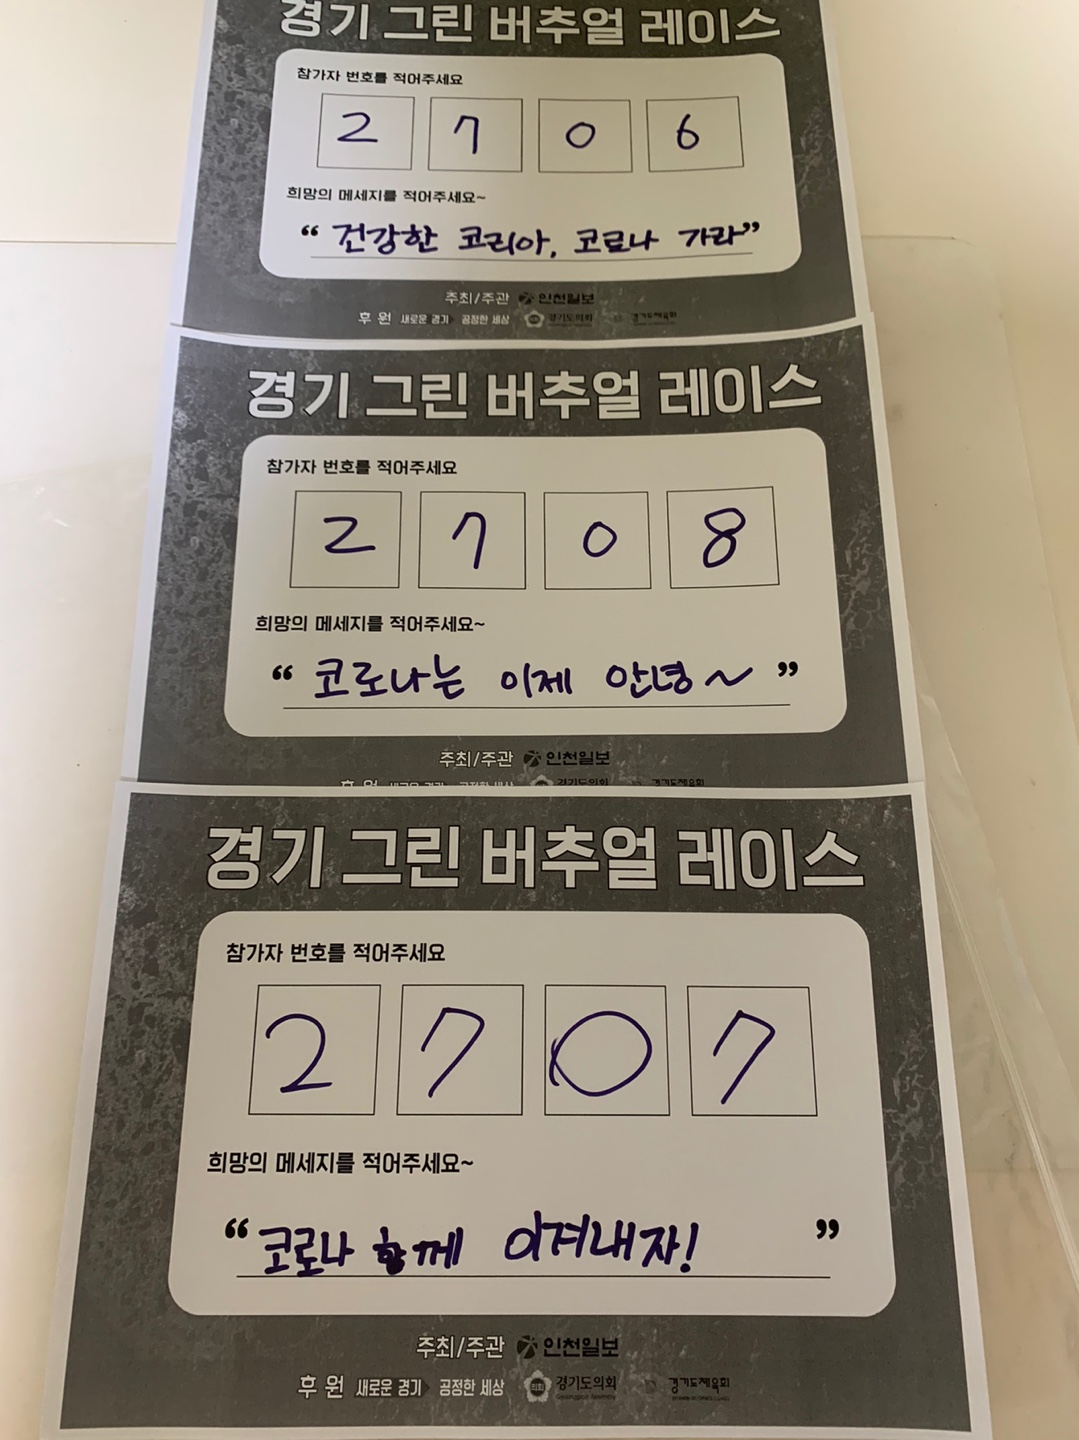 경기 그린 버추얼 레이스
참가자 번호를 적어주세요
2 7 0 6
희망의 메세지를 적어주세요~
“ 건강한 코리아, 코로나 가라 ”
주최/주관 인천일보
후 원 새로운 경기 공정한 세상 경기도의회 경기도체육회
경기 그린 버추얼 레이스
참가자 번호를 적어주세요
2 7 0 8
희망의 메세지를 적어주세요~
“ 코로나는 이제 안녕~ ”
주최/주관 인천일보
후 원 새로운 경기 공정한 세상 경기도의회 경기도체육회
경기 그린 버추얼 레이스
참가자 번호를 적어주세요
2 7 0 7
희망의 메세지를 적어주세요~
“ 코로나 함께 이겨내자! ”
주최/주관 인천일보
후 원 새로운 경기 공정한 세상 경기도의회 경기도체육회